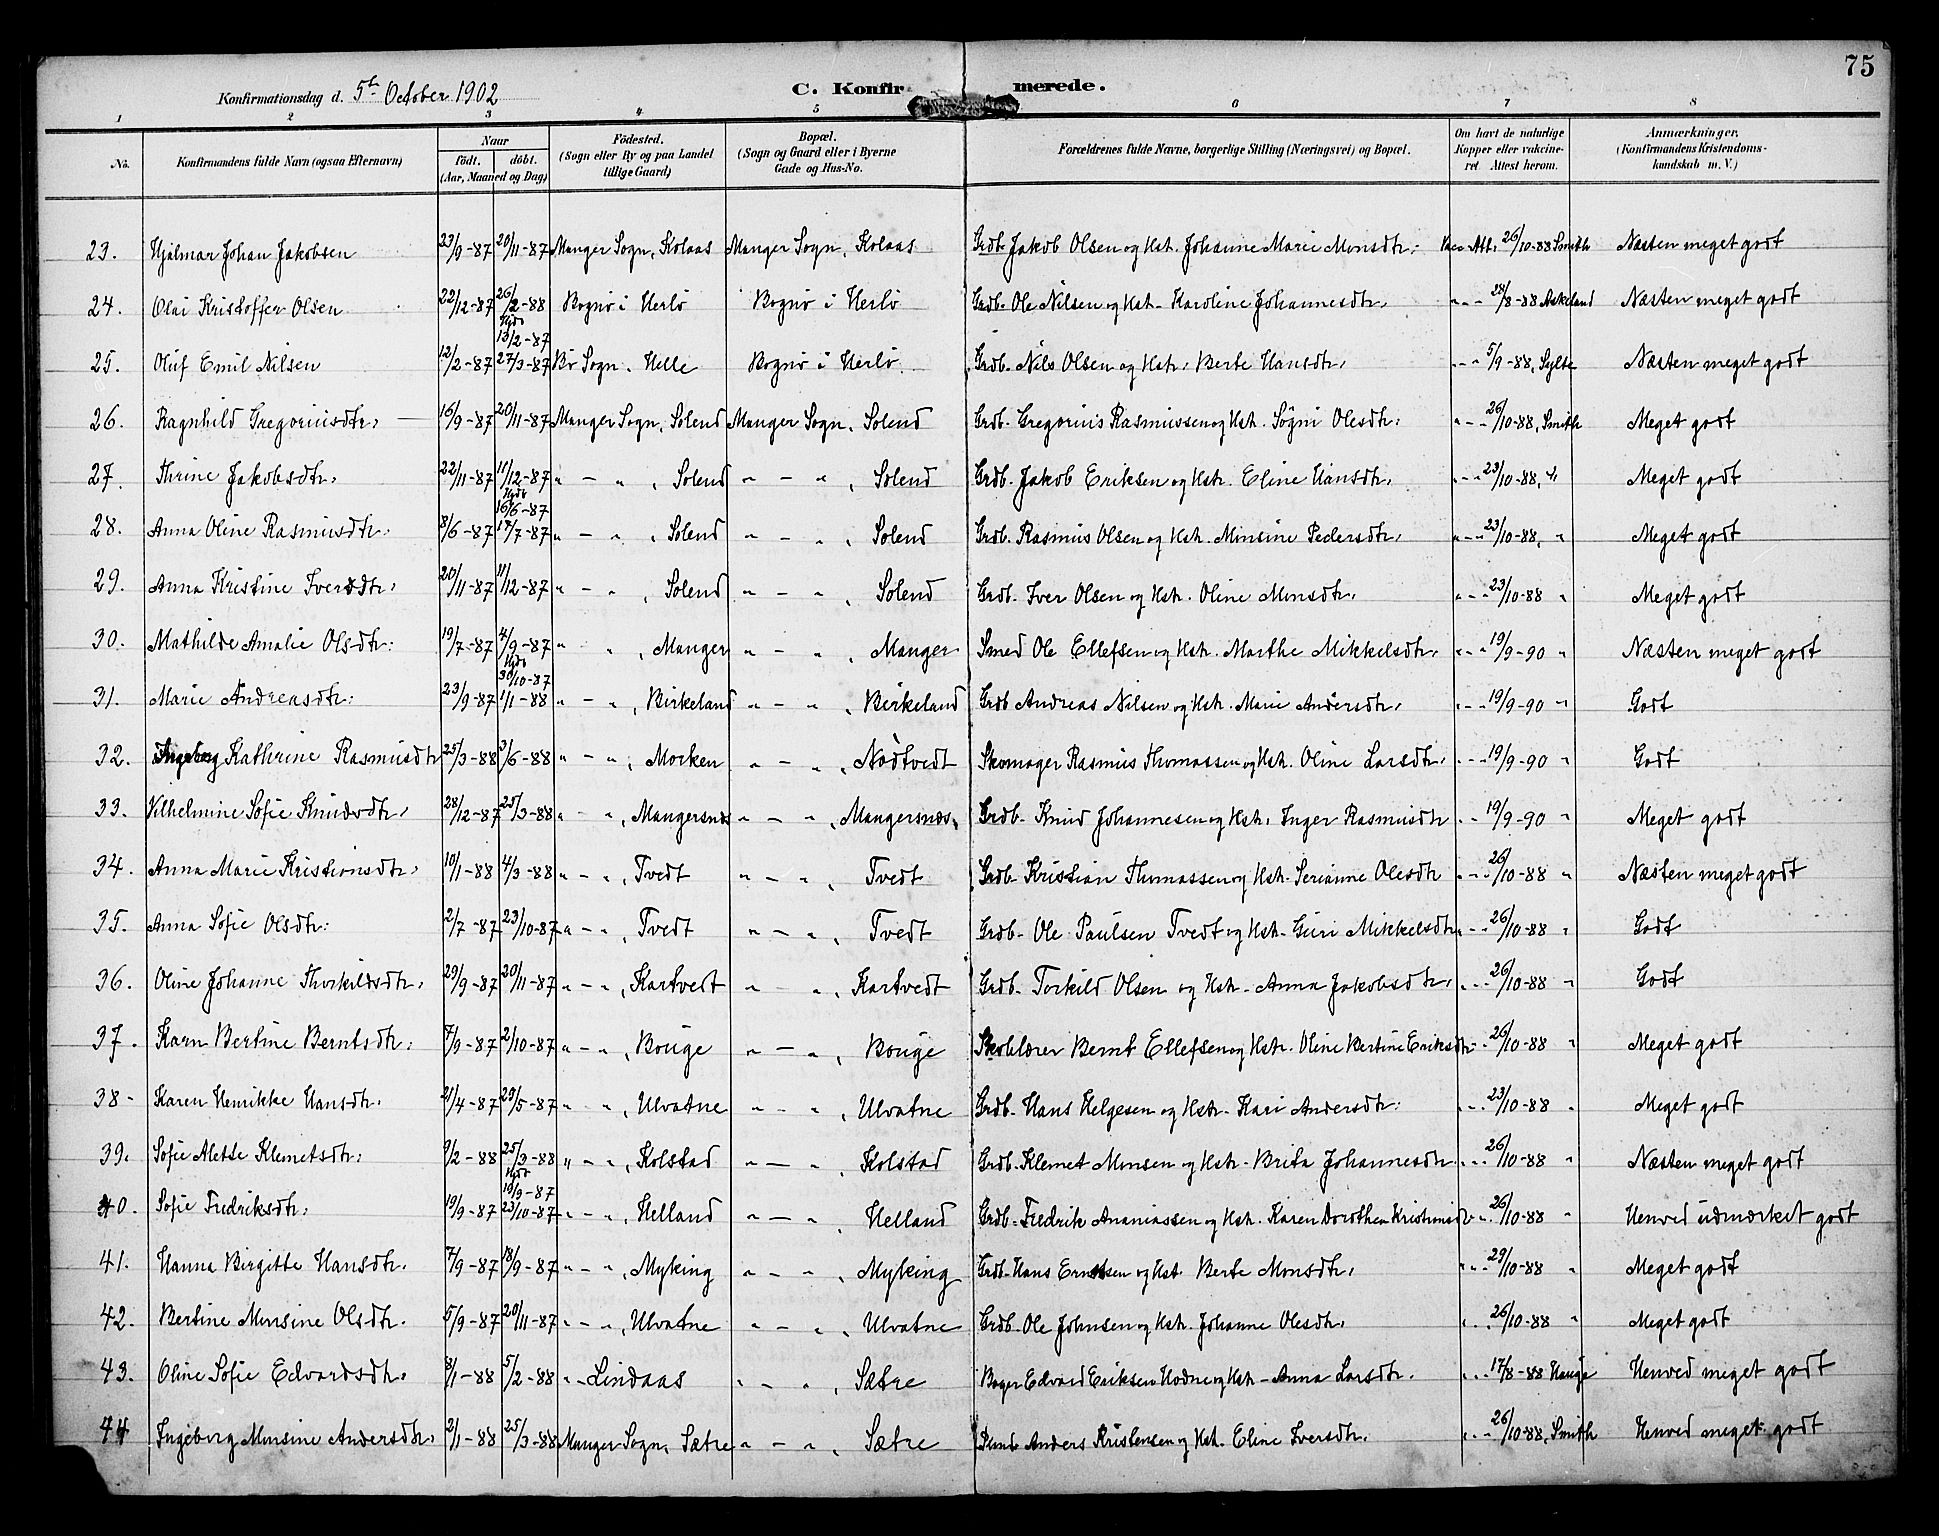 75
Konfirmationsdag d. 5te October 1902 C. Konfirmerede.
1 2 3 4 5 6 7 8
No. Konfirmandens fulde Navn (ogsaa Efternavn) Naar födt. döbt. (Aar, Maaned og Dag) Födested. (Sogn eller By og paa Landet tillige Gaard) Bopæl. (Sogn og Gaard eller i Byerne Gade og Hus-No. Forældrenes fulde Navne, borgerlige Stilling (Næringsvei) og Bopæl. Om havt de naturlige Kopper eller vakcineret Attest herom. Anmærkninger. (Konfirmandens Kristendomskundskab m. V.)
23. Hjalmar Johan Jakobsen 23/9-87 20/11-87 Manger Sogn, Kolaas Manger Sogn, Kolaas Grdb. Jakob Olsen og Hst. Johanne Marie Monsdtr. Vac. Att. 26/10-88 Smith Næsten meget godt
24. Olai Kristoffer Olsen 22/12-87 26/2-88 Bognø i Herlø Bognø i Herlø Grdb. Ole Nilsen og Hst. Karoline Johannesdtr. " - " 28/8-88 Askeland Næsten meget godt
25. Oluf Emil Nilsen 12/2-87 Hjdb 13/2-87 27/3-87 Bø Sogn, Helle Bognø i Herlø Grdb. Nils Olsen og Hstr. Berte Hansdtr. " - " 5/9-88, Sylte Næsten meget godt
26. Ragnhild Gregoriusdtr. 16/9-87 20/11-87 Manger Sogn, Solend Manger Sogn, Solend Grdb. Gregorius Rasmussen og Hst. Sögni Olesdtr. " - " 26/10-88, Smith Meget godt
27. Thrine Jakobsdtr. 22/11-87 11/12-87 " - ", Solend " - ", Solend Grdb. Jakob Eriksen og Hstr. Eline Hansdtr. " - " 23/10-88, " Meget godt
28. Anna Oline Rasmusdtr. 8/6-87 Hjdb 16/6-87 17/7-87 " - ", Solend " - ", Solend Grdb. Rasmus Olsen og Hstr. Monsine Pedersdtr. " - " 23/10-88, " Meget godt
29. Anna Kristine Iversdtr. 20/11-87 11/12-87 " - ", Solend " - ", Solend Grdb. Iver Olsen og Hstr. Oline Monsdtr. " - " 23/10-88 " Meget godt
30. Mathilde Amalie Olsdtr. 19/7-87 4/9-87 " ", Manger " - ", Manger Smed Ole Ellefsen og Hstr. Marthe Mikkelsdtr. " - " 19/9-90 " Næsten meget godt
31. Marie Andreasdtr. 23/9-87 Hjdb 30/10-87 1/1-88 " - ", Birkeland " - ", Birkeland Grdb Andreas Nilsen og Hstr. Marie Andersdtr. " - " 19/9-90 " Godt
32. Ingeborg Kathrine Rasmusdtr 25/3-88 3/6-88 " - ", Morken " - ", Nødtvedt Skomager Rasmus Thomassen og Hst. Oline Larsdtr. " - " 19/9-90 " Godt
33. Vilhelmine Sofie Knudsdtr. 28/12-87 25/3-88 " - ", Mangersnæs " - ", Mangersnæs, Grdb. Knud Johannesen og Hstr. Inger Rasmusdtr " - " 19/9-90 " Meget godt
34. Anna Marie Kristiansdtr. 10/1-88 4/3-88 " - ", Tvedt " - ", Tvedt Grdb. Kristian Thomassen og Hst. Serianne Olesdtr " - " 26/10-88 " Næsten meget godt
35. Anna Sofie Olsdtr. 2/7-87 23/10-87 " - ", Tvedt " - ", Tvedt Grdb. Ole Paulsen Tvedt og Hst. Guri Mikkelsdtr " - " 26/10-88 " Godt
36. Oline Johanne Thorkildsdtr. 29/9-87 20/11-87 " - ", Kartvedt " - ", Kartvedt Grdb. Torkild Olsen og Hst. Anna Jakobsdtr. " - " 26/10-88 " Godt
37. Karn Bertine Berntsdtr. 7/9-87 2/10-87 " - ", Bouge " - ", Bouge Skolelærer Bernt Ellefsen og Hstr. Oline Bertine Eriksdtr " - " 26/10-88 " Meget godt
38. Karen Henrikke Hansdtr. 21/4-87 29/5-87 " - ", Ulvatne " - ", Ulvatne Grdb. Hans Helgesen og Hstr. Kari Andersdtr. " - " 23/10-88 " Meget godt
39. Sofie Alette Klemetsdtr. 9/2-88 25/3-88 " - ", Kolstad " - ", Kolstad Grdb. Klemet Monsen og Hstr. Brita Johannesdtr. " - " 26/10-88 " Næsten meget godt
40. Sofie Fredriksdtr. 19/9-87 Hjdb 19/9-87 23/10-87 " - ", Helland " - ", Helland Grdb. Fredrik Ananiassen og Hst. Karen Dorothea Kristensdtr " - " 26/10-88 " Henved udmærket godt
41. Hanna Birgitte Hansdtr. 7/9-87 18/9-87 " - ", Myking " - ", Myking Grdb. Hans Ernstsen og Hst. Berte Monsdtr. " - " 29/10-88 " Meget godt
42. Bertine Monsine Olsdtr. 5/9-87 20/11-87 " - ", Ulvatne " - ", Ulvatne Grdb. Ole Johnsen og Hstr. Johanne Olesdtr. " " 26/10-88 " Meget godt
43. Oline Sofie Edvardsdtr. 8/1-88 5/2-88 " - Lindaas " - ", Sætre Bager Edvard Eriksen Hodne og Hst. Anna Larsdtr. " - " 17/8-88 Hauge Henved meget godt
44 Ingeborg Monsine Andersdtr. 2/1-88 25/3-88 Manger Sogn, Sætre " - ", Sætre Anders Kristensen og Hst. Eline Iversdtr. " - " 26/10-88, Smith Henved meget godt